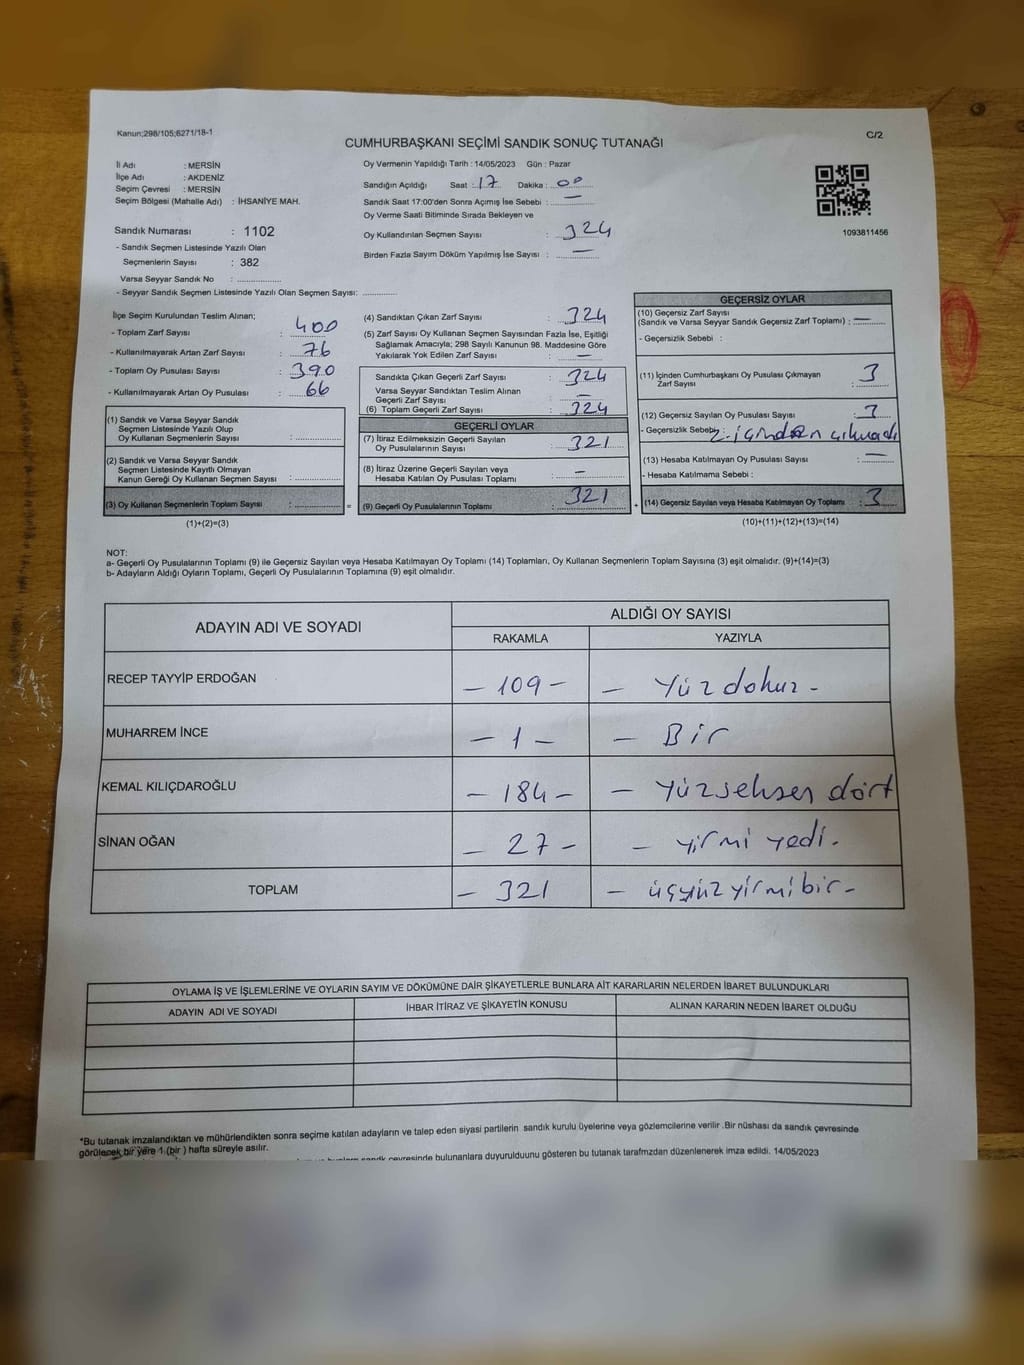 Kanun;298/105;6271/18-1
C/2
CUMHURBAŞKANI SEÇİMİ SANDIK SONUÇ TUTANAĞI
İl Adı : MERSİN
İlçe Adı : AKDENİZ
Seçim Çevresi : MERSİN
Seçim Bölgesi (Mahalle Adı) : İHSANİYE MAH.
Sandık Numarası : 1102
- Sandık Seçmen Listesinde Yazılı Olan
Seçmenlerin Sayısı : 382
Varsa Seyyar Sandık No : ..............
- Seyyar Sandık Seçmen Listesinde Yazılı Olan Seçmen Sayısı: ............
Oy Vermenin Yapıldığı Tarih : 14/05/2023 Gün : Pazar
Sandığın Açıldığı Saat : 17 Dakika : 00
Sandık Saat 17:00'den Sonra Açımış İse Sebebi : —
Oy Verme Saati Bitiminde Sırada Bekleyen ve
Oy Kullandırılan Seçmen Sayısı : 324
Birden Fazla Sayım Döküm Yapılmış İse Sayısı : —
1093811456
İlçe Seçim Kurulundan Teslim Alınan;
- Toplam Zarf Sayısı : 400
- Kullanılmayarak Artan Zarf Sayısı : 76
- Toplam Oy Pusulası Sayısı : 390
- Kullanılmayarak Artan Oy Pusulası : 66
(1) Sandık ve Varsa Seyyar Sandık
Seçmen Listesinde Yazılı Olup
Oy Kullanan Seçmenlerin Sayısı : ..............
(2) Sandık ve Varsa Seyyar Sandık
Seçmen Listesinde Kayıtlı Olmayan
Kanun Gereği Oy Kullanan Seçmen Sayısı : ..............
(3) Oy Kullanan Seçmenlerin Toplam Sayısı : .............. =
(1)+(2)=(3)
(4) Sandıktan Çıkan Zarf Sayısı : 324
(5) Zarf Sayısı Oy Kullanan Seçmen Sayısından Fazla İse, Eşitliği
Sağlamak Amacıyla; 298 Sayılı Kanunun 98. Maddesine Göre
Yakılarak Yok Edilen Zarf Sayısı : —
Sandıkta Çıkan Geçerli Zarf Sayısı : 324
Varsa Seyyar Sandıktan Teslim Alınan
Geçerli Zarf Sayısı : —
(6) Toplam Geçerli Zarf Sayısı : 324
GEÇERLİ OYLAR
(7) İtiraz Edilmeksizin Geçerli Sayılan
Oy Pusulalarının Sayısı : 321
(8) İtiraz Üzerine Geçerli Sayılan veya
Hesaba Katılan Oy Pusulası Toplamı : —
(9) Geçerli Oy Pusulalarının Toplamı : 321 +
GEÇERSİZ OYLAR
(10) Geçersiz Zarf Sayısı
(Sandık ve Varsa Seyyar Sandık Geçersiz Zarf Toplamı) : —
- Geçersizlik Sebebi :
(11) İçinden Cumhurbaşkanı Oy Pusulası Çıkmayan
Zarf Sayısı : 3
(12) Geçersiz Sayılan Oy Pusulası Sayısı : 3
- Geçersizlik Sebebi: içinden çıkmadı
(13) Hesaba Katılmayan Oy Pusulası Sayısı : —
- Hesaba Katılmama Sebebi :
(14) Geçersiz Sayılan veya Hesaba Katılmayan Oy Toplamı : 3
(10)+(11)+(12)+(13)=(14)
NOT:
a- Geçerli Oy Pusulalarının Toplamı (9) ile Geçersiz Sayılan veya Hesaba Katılmayan Oy Toplamı (14) Toplamları, Oy Kullanan Seçmenlerin Toplam Sayısına (3) eşit olmalıdır. (9)+(14)=(3)
b- Adayların Aldığı Oyların Toplamı, Geçerli Oy Pusulalarının Toplamına (9) eşit olmalıdır.
ADAYIN ADI VE SOYADI
ALDIĞI OY SAYISI
RAKAMLA YAZIYLA
RECEP TAYYİP ERDOĞAN - 109 - - Yüzdokuz -
MUHARREM İNCE - 1 - - Bir
KEMAL KILIÇDAROĞLU - 184 - - Yüzseksen dört
SİNAN OĞAN - 27 - - yirmi yedi.
TOPLAM - 321 - üçyüzyirmibir -
OYLAMA İŞ VE İŞLEMLERİNE VE OYLARIN SAYIM VE DÖKÜMÜNE DAİR ŞİKAYETLERLE BUNLARA AİT KARARLARIN NELERDEN İBARET BULUNDUKLARI
ADAYIN ADI VE SOYADI İHBAR İTİRAZ VE ŞİKAYETİN KONUSU ALINAN KARARIN NEDEN İBARET OLDUĞU
*Bu tutanak imzalandıktan ve mühürlendikten sonra seçime katılan adayların ve talep eden siyasi partilerin sandık kurulu üyelerine veya gözlemcilerine verilir .Bir nüshası da sandık çevresinde
görülecek bir yere 1 (bir ) hafta süreyle asılır.
sandık çevresinde bulunanlara duyurulduunu gösteren bu tutanak tarafmzdan düzenlenerek imza edildi. 14/05/2023